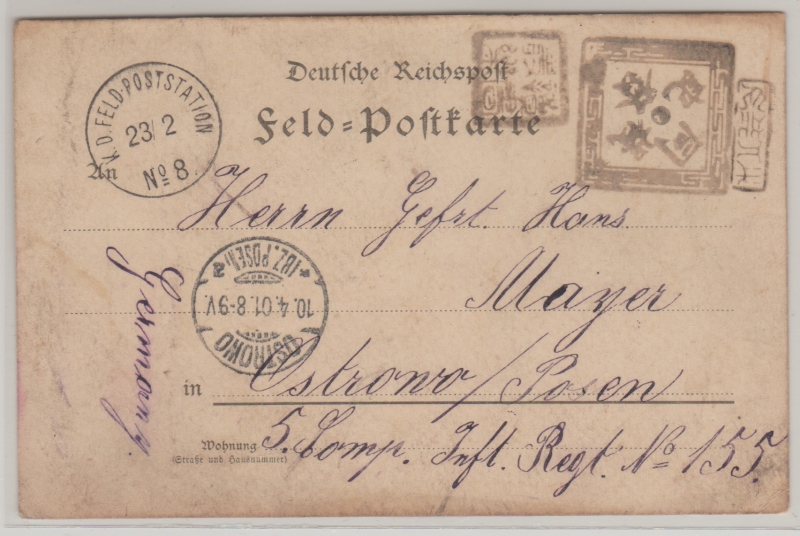 Deutsche Reichspost
Feld=Postkarte
K.D. FELD-POSTSTATION
23/2
No 8.
An
Herrn Gefrt. Hans
Mayer
Germany.
OSTROWO
10.4.01.8-9V.
*(BZ. POSEN)a
in Ostrowo/Posen
Wohnung 5. Comp. Inft. Regt. No 155.
(Straße und Hausnummer)